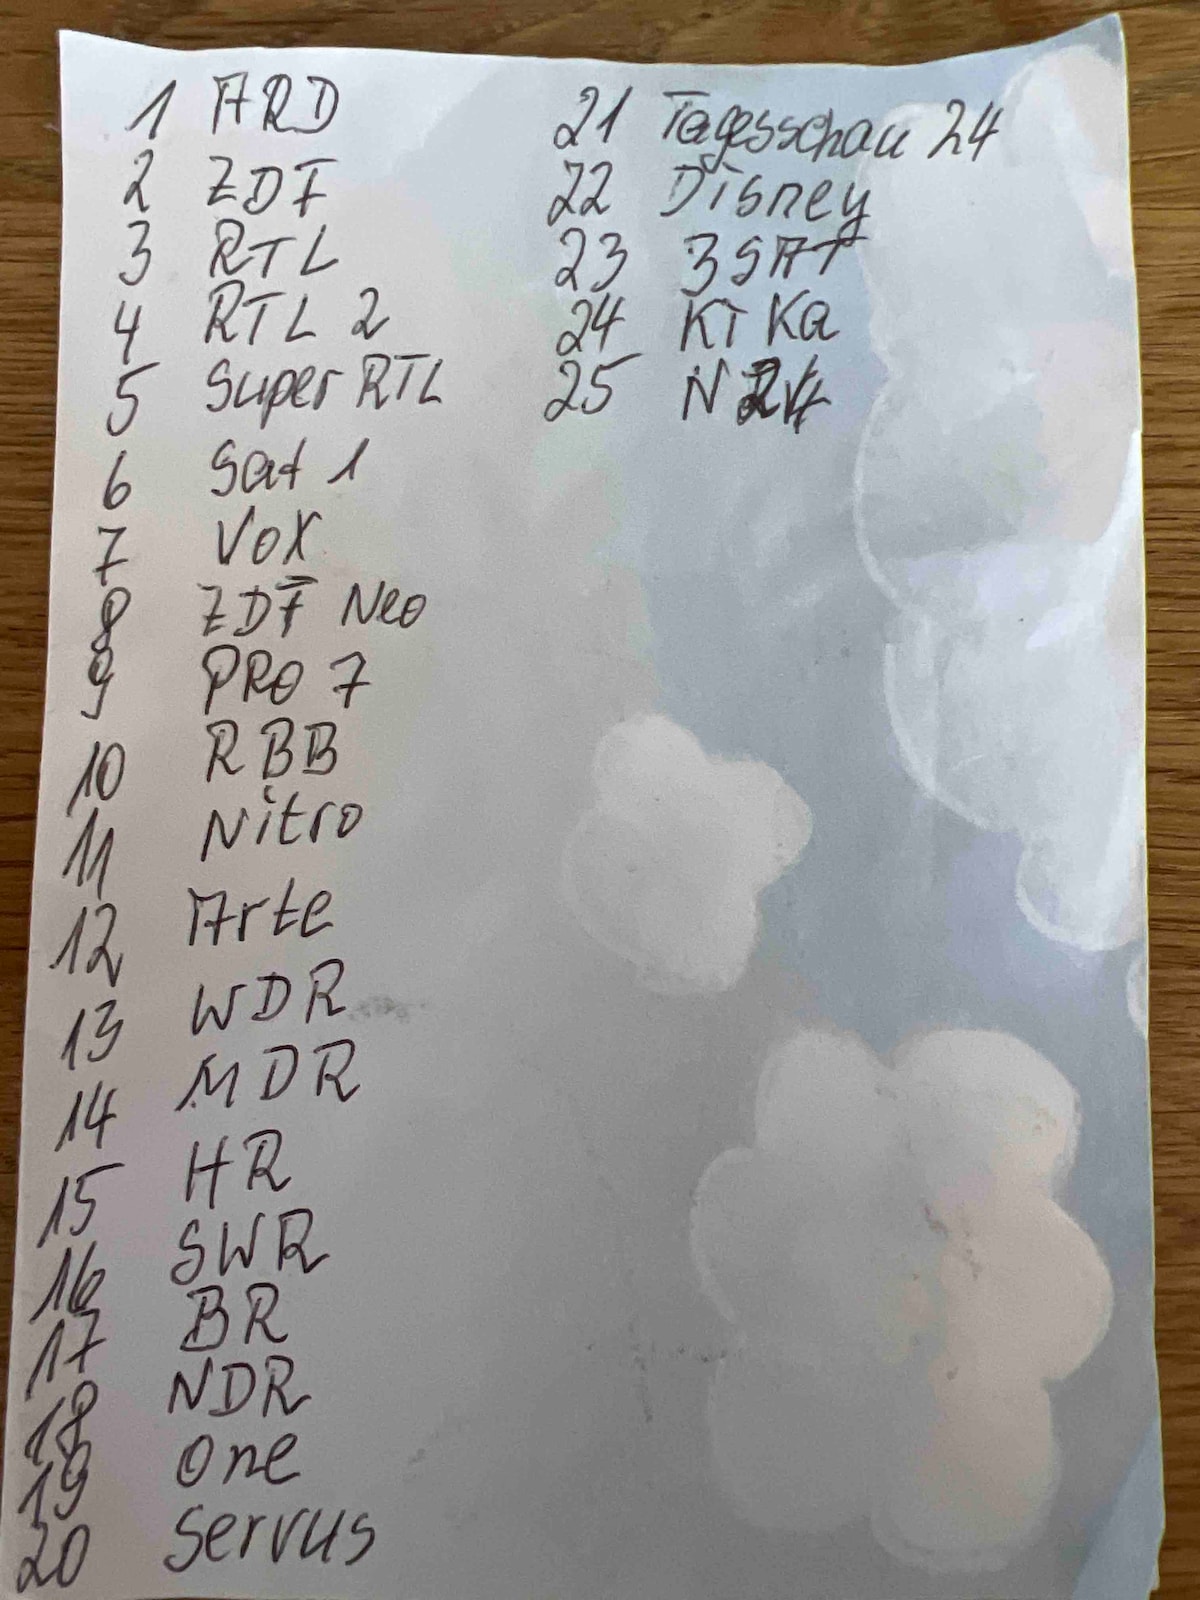 1 ARD
2 ZDF
3 RTL
4 RTL 2
5 Super RTL
6 Sat 1
7 VOX
8 ZDF Neo
9 PRO 7
10 RBB
11 Nitro
12 Arte
13 WDR
14 MDR
15 HR
16 SWR
17 BR
18 NDR
19 One
20 Servus
21 Tagesschau 24
22 Disney
23 3 SAT
24 KIKa
25 N24